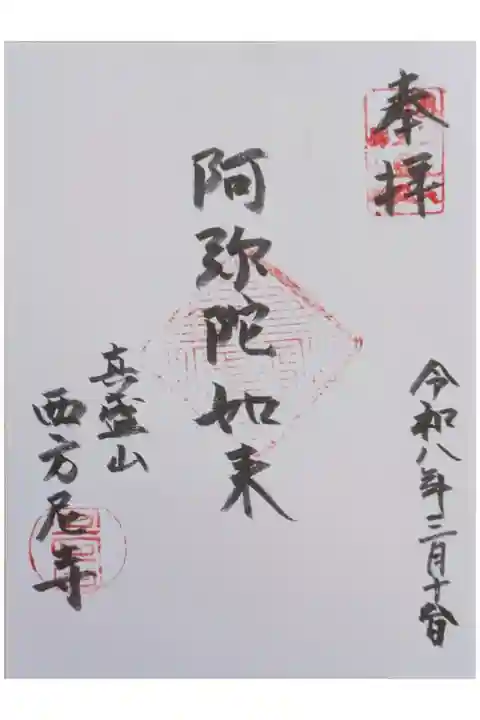 奉拝
令和八年三月十
阿弥陀如来
真盛山
西方尼寺